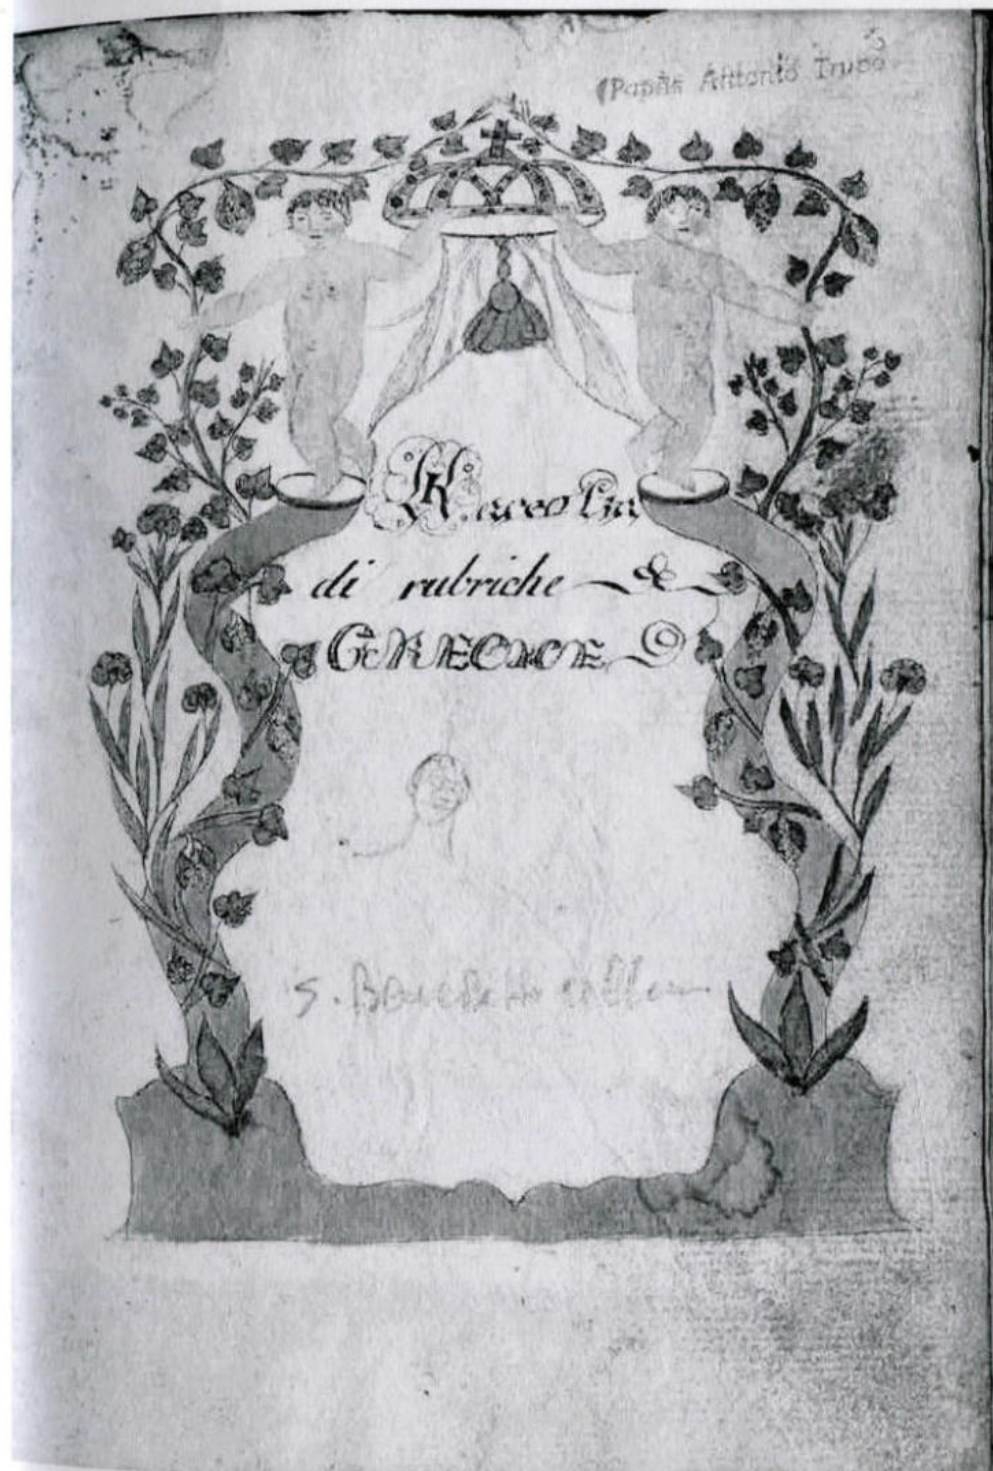 Papàs Antonio Trupo
Raccolta
di rubriche
GRECHE
S. Benedetto Ullano